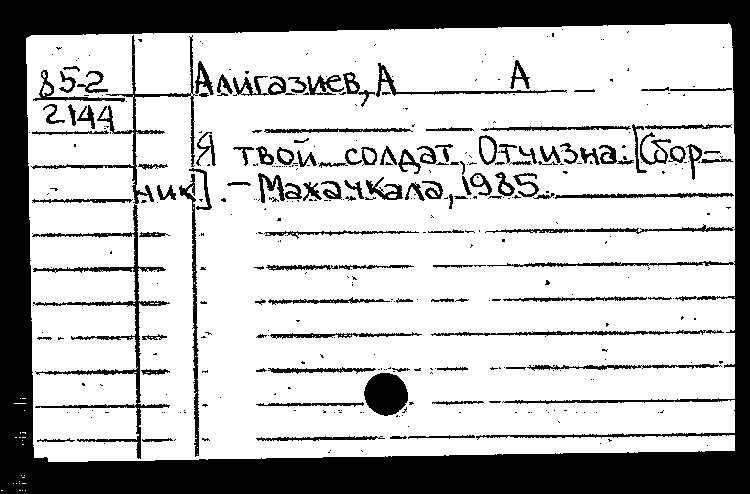 85-2
2144
Алигазиев, А А
Я твой солдат, Отчизна: [Сбор=
ник]. - Махачкала, 1985.